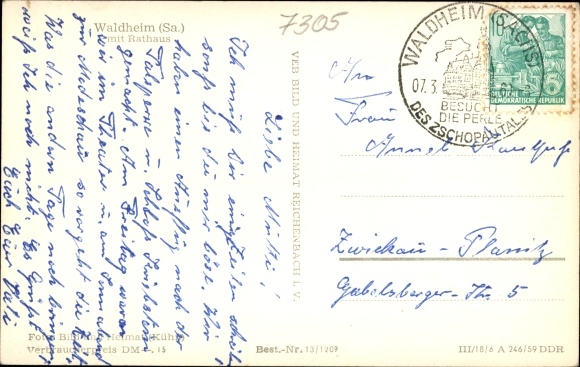 Waldheim (Sa.)
mit Rathaus
7305
Liebe Mutti!
Ich muß Dir einige Zeilen schreiben
sonst bist du mir böse. Wir
haben einen Ausflug nach der
Talsperre u. Schloß Kriebstein
gemacht. Am Freitag waren
wir im Theater u. am Sonnabend
zur Modeschau so vergeht die Zeit
Was die andern Tage noch bringen
weiß ich noch nicht. Es grüßt
Euch Euer Vati
Foto: Bild und Heimat (Kühn)
Verbraucherpreis DM -,15
VEB BILD UND HEIMAT REICHENBACH i. V.
Best.-Nr. 13/1209
WALDHEIM (SACHS)
07.3.
BESUCHT
DIE PERLE
DES ZSCHOPAUTALES
DEUTSCHE
DEMOKRATISCHE REPUBLIK
An
Frau
Zwickau-Planitz
Gabelsberger-Str. 5
III/18/6 A 246/59 DDR